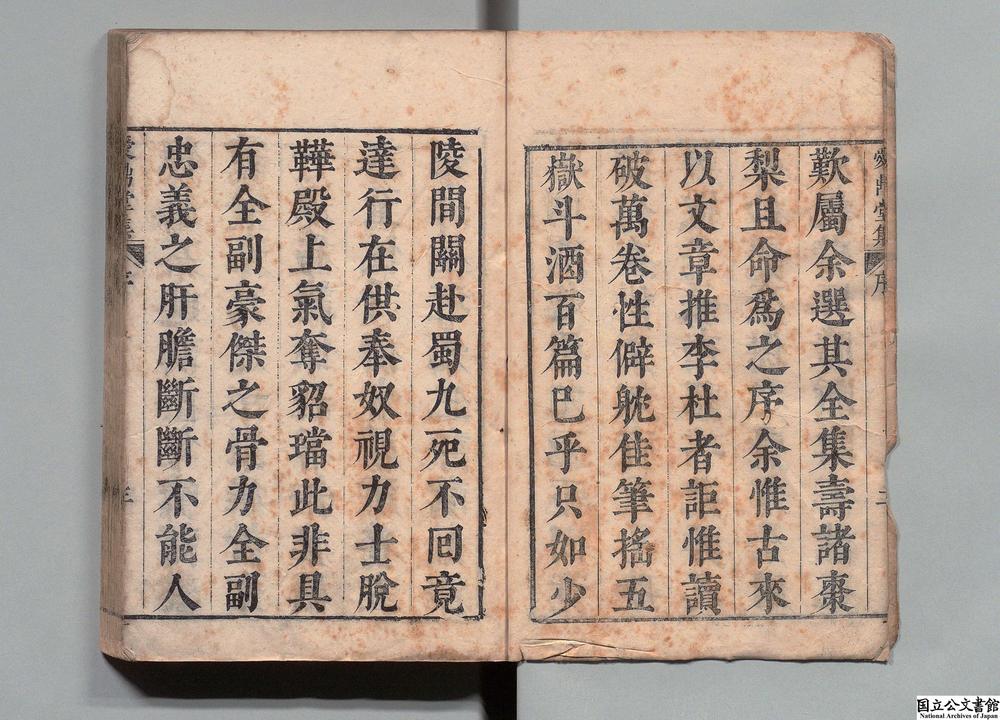 歎屬余選其全集壽諸棗
梨且命爲之序余惟古來
以文章推李杜者詎惟讀
破萬卷性僻躭佳筆搖五
嶽斗酒百篇已乎只如少
陵間關赴蜀九死不回竟
達行在供奉奴視力士脫
鞾殿上氣奪貂璫此非具
有全副豪傑之骨力全副
忠義之肝膽斷斷不能人
國立公文書館
National Archives of Japan